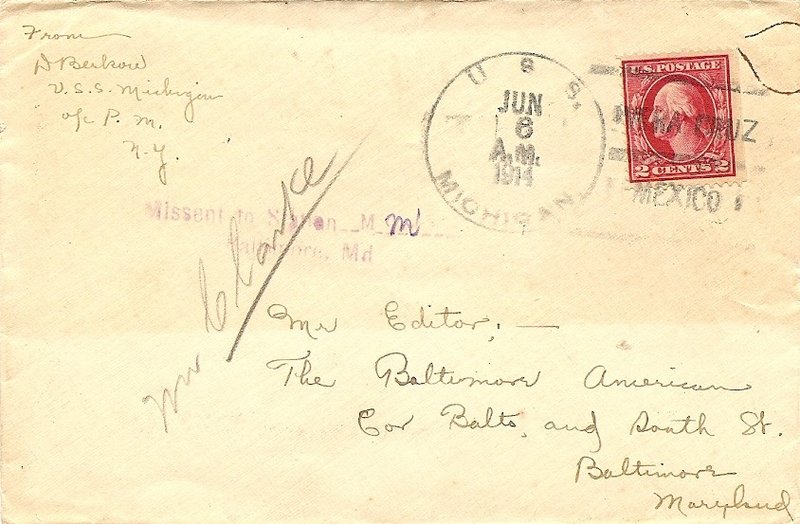 From
D Berkow
U.S.S. Michigan
o/c P. M.
N.Y.
U S S.
JUN
6
A.M.
1914
MICHIGAN
U.S. POSTAGE
2 CENTS 2
VERA CRUZ
MEXICO
Missent to Station M
m
Baltimore, Md
Mr Clarke
Mr Editor, —
The Baltimore American
Cor Balto, and South St.
Baltimore
Maryland